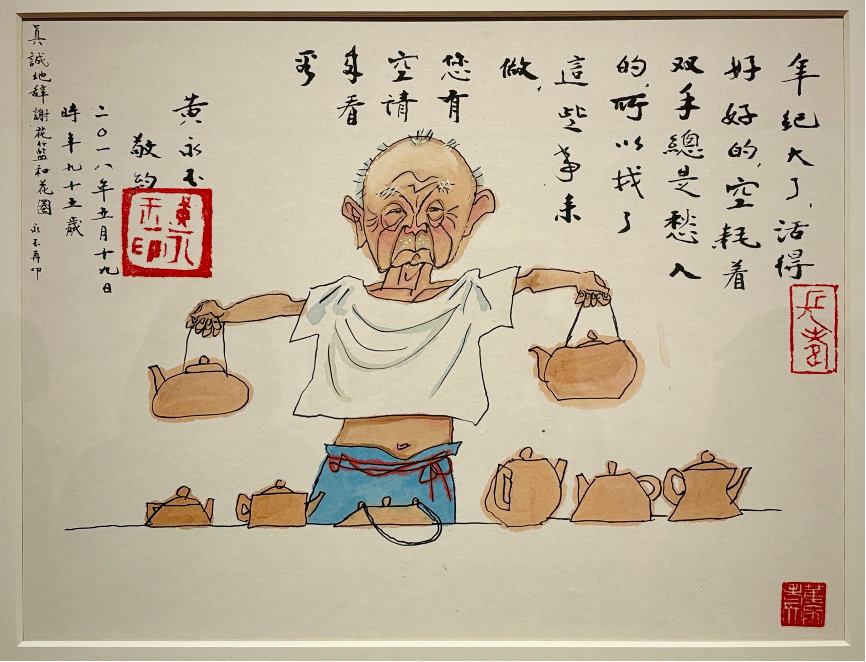 年紀大了,活得
好好的,空耗着
双手總是愁人
的,所以找了
這些事来
做,
您有
空請
来看
看
黄永玉
敬約
二〇一八年五月十九日
時年九十五歲
真誠地辞謝花籃和花圈 永玉再叩
黄永玉印